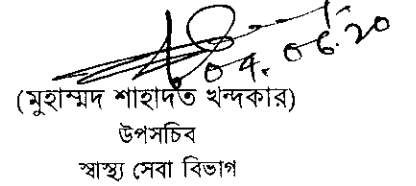 ০৪.০৬.২০
(মুহাম্মদ শাহাদত খন্দকার)
উপসচিব
স্বাস্থ্য সেবা বিভাগ